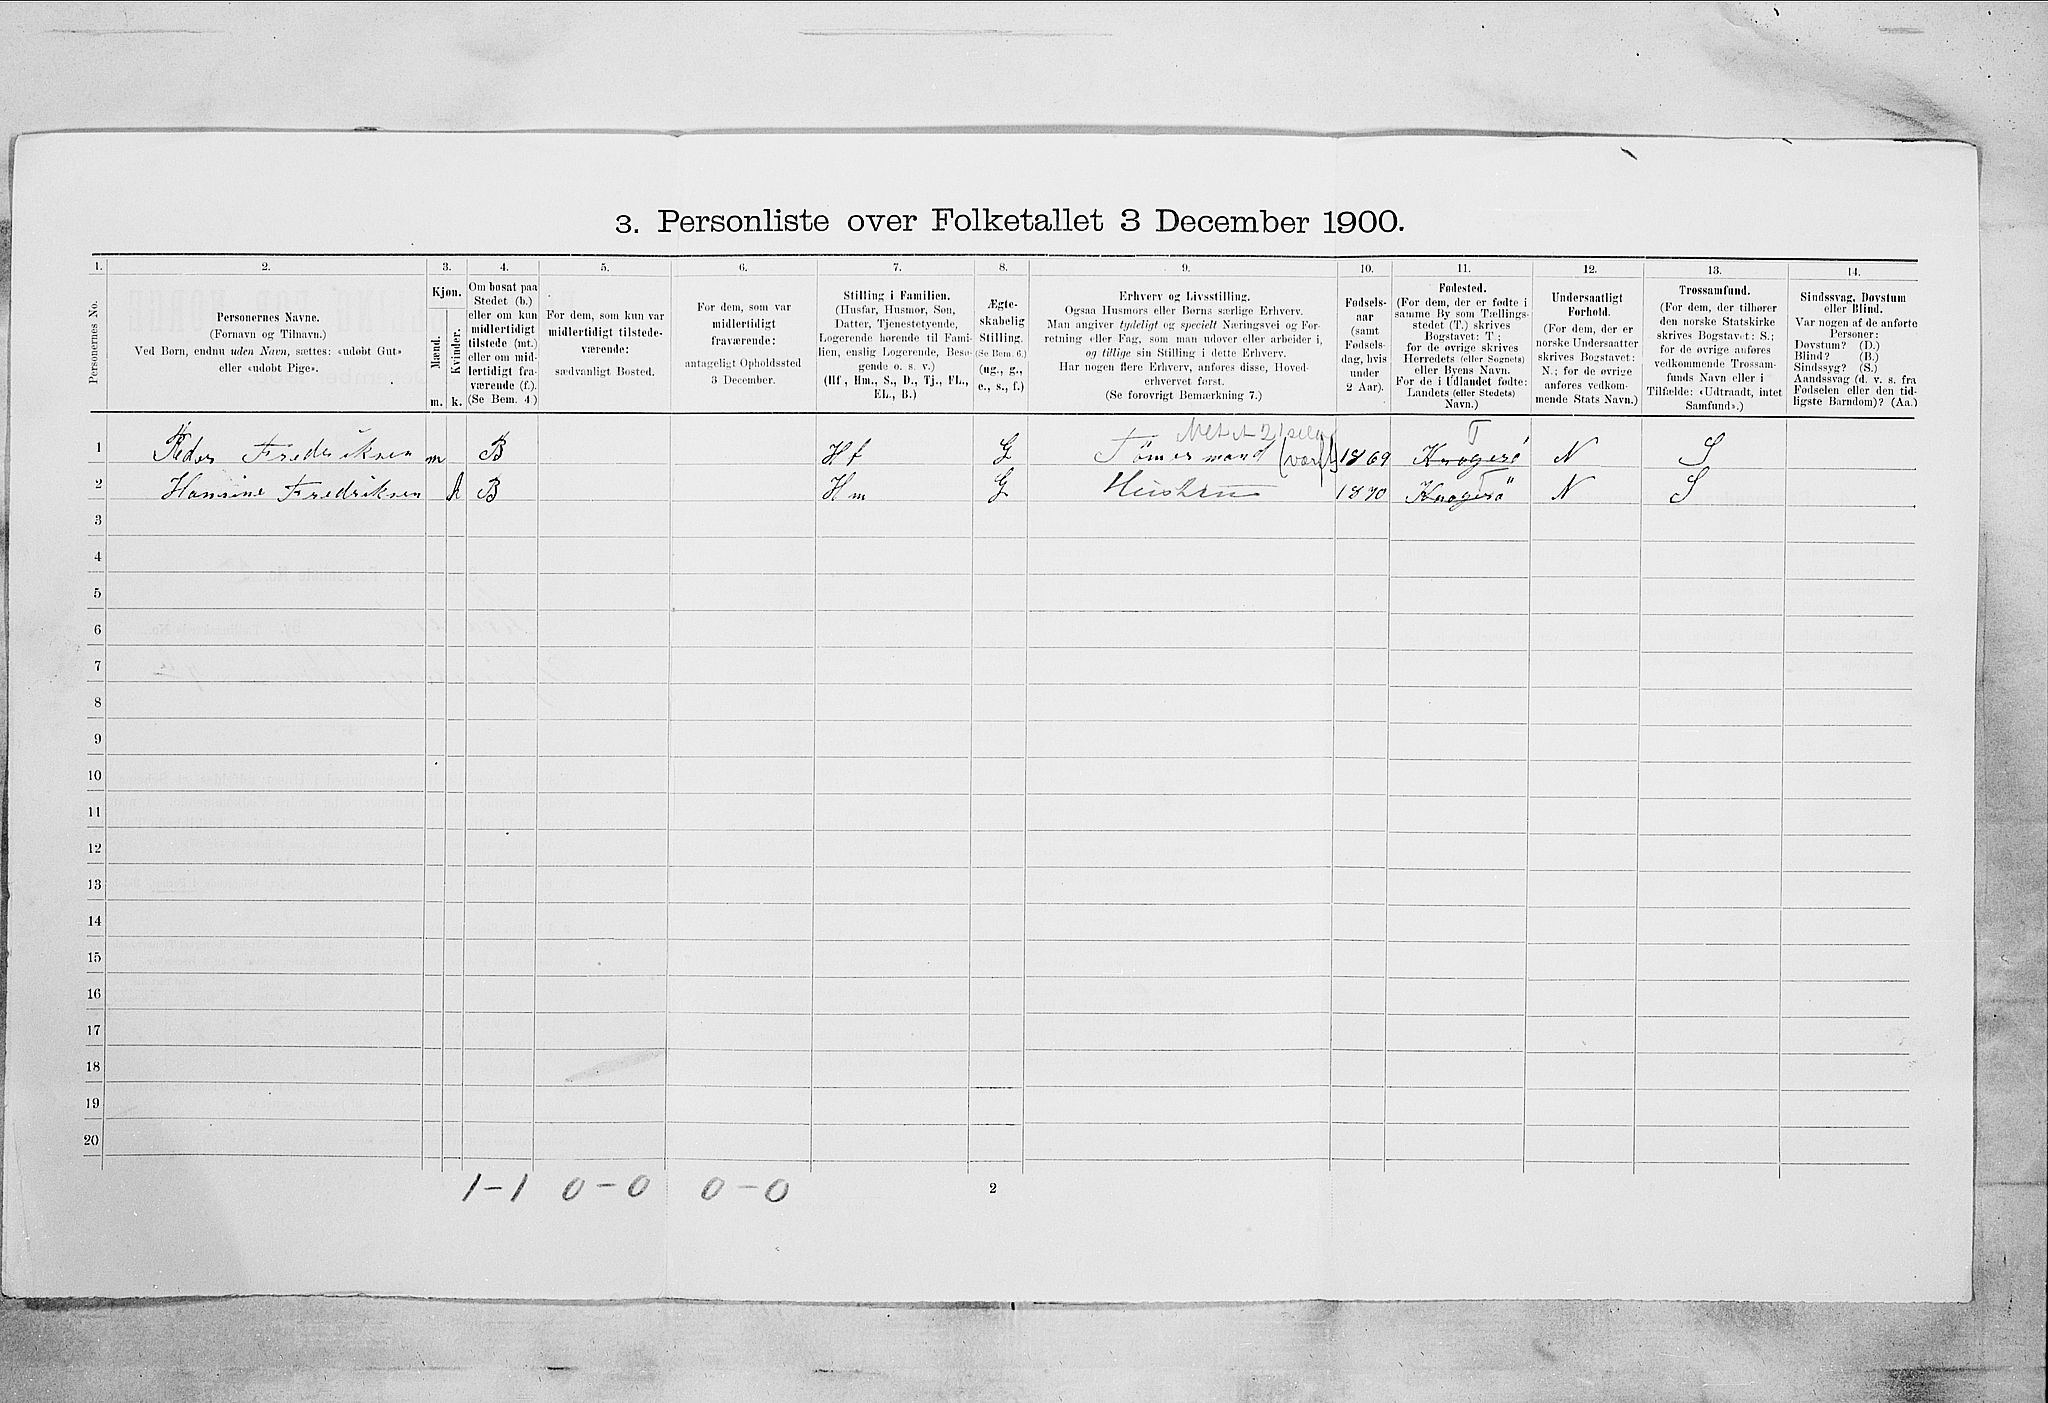 3. Personliste over Folketallet 3 December 1900.
1. 2. 3. 4. 5. 6. 7. 8. 9. 10. 11. 12. 13. 14.
Personernes No.
Personernes Navne.
(Fornavn og Tilnavn.)
Ved Børn, endnu uden Navn, sættes: «udøbt Gut»
eller «udøbt Pige».
Kjøn.
Mænd.
Kvinder.
m. k.
Om bosat paa
Stedet (b.)
eller om kun
midlertidigt
tilstede (mt.)
eller om mid-
lertidigt fra-
værende (f.).
(Se Bem. 4)
For dem, som kun var
midlertidigt tilstede-
værende:
sædvanligt Bosted.
For dem, som var
midlertidigt
fraværende:
antageligt Opholdssted
3 December.
Stilling i Familien.
(Husfar, Husmor, Søn,
Datter, Tjenestetyende,
Logerende hørende til Fami-
lien, enslig Logerende, Besø-
gende o. s. v.)
(Hf, Hm., S., D., Tj., FL.,
EL., B.)
Ægte-
skabelig
Stilling.
(Se Bem. 6.)
(ug., g.,
e., s., f.)
Erhverv og Livsstilling.
Ogsaa Husmors eller Børns særlige Erhverv.
Man angiver tydeligt og specielt Næringsvei og For-
retning eller Fag, som man udøver eller arbeider i,
og tillige sin Stilling i dette Erhverv.
Har nogen flere Erhverv, anføres disse, Hoved-
erhvervet først.
(Se forøvrigt Bemærkning 7.)
Fødsels-
aar
(samt
Fødsels-
dag, hvis
under
2 Aar).
Fødested.
(For dem, der er fødte i
samme By som Tællings-
stedet (T.) skrives
Bogstavet: T.;
for de øvrige skrives
Herredets (eller Sognets)
eller Byens Navn.
For de i Udlandet fødte:
Landets (eller Stedets)
Navn.)
Undersaatligt
Forhold.
(For dem, der er
norske Undersaatter
skrives Bogstavet:
N.; for de øvrige
anføres vedkom-
mende Stats Navn.)
Trossamfund.
(For dem, der tilhører
den norske Statskirke
skrives Bogstavet: S.;
for de øvrige anføres
vedkommende Trossam-
funds Navn eller i
Tilfælde: «Udtraadt, intet
Samfund».)
Sindssvag, Døvstum
eller Blind.
Var nogen af de anførte
Personer:
Døvstum? (D.)
Blind? (B.)
Sindssyg? (S.)
Aandssvag (d. v. s. fra
Fødselen eller den tid-
ligste Barndom)? (Aa.)
T
1 Peder Fredriksen m B Hf G Tømermand 1869 Kragerö N S
T
2 Hansine Fredriksen k B Hm G Hustru 1870 Kragerö N S
3
4
5
6
7
8
9
10
11
12
13
14
15
16
17
18
19
20
1-1 0-0 0-0
2